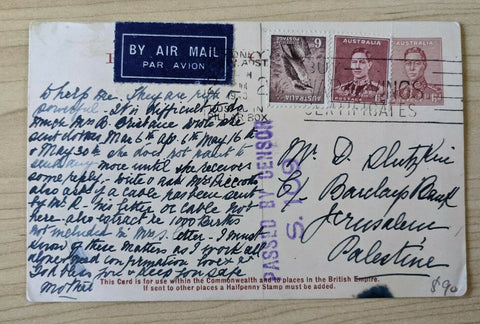 BY AIR MAIL
PAR AVION
AUSTRALIA
AUSTRALIA
POSTAGE
CERTIFICATES
PASSED BY CENSOR
S. 102
help me. They are
powerful. It is difficult to do
much Mrs B. Brisbane wrote she
sent dolmes Mar 6th Ap. 6th May 16th
& May 30th she does not want to
send any more until she receives
some reply - write & ask
also if a cable has been sent
by Mr R. his letter or cable not
here - also extract
not included in Mrs S. letter - I must
know of these matters as I work all
alone need confirmation love
God bless you & keep you safe
Mother
Mr. D. Slutzkin
C/o Barclays Bank
Jerusalem
Palestine
This Card is for use within the Commonwealth and to places in the British Empire.
If sent to other places a Halfpenny Stamp must be added.
$90